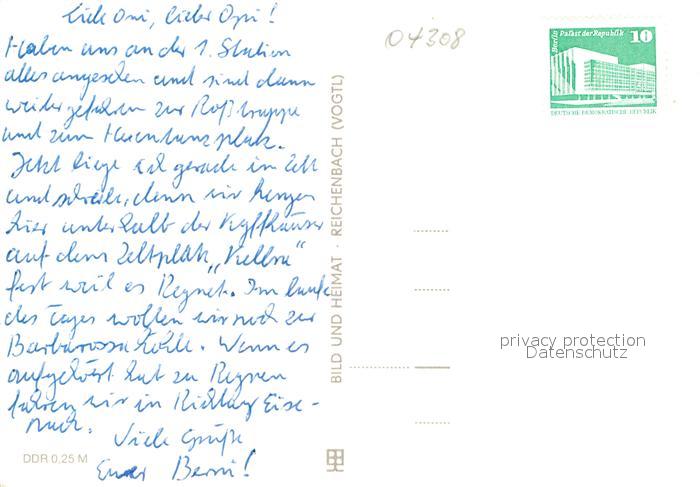 Liebe Omi, lieber Opi!
Haben uns an der 1. Station
alles angesehen und sind dann
weitergefahren zur Roßtrappe
und zum Hexentanzplatz.
Jetzt liege ich gerade im Zelt
und schreibe, denn wir hängen
hier unterhalb der Kyffhäuser
auf dem Zeltplatz „Kelbra"
fest weil es Regnet. Im laufe
des Tages wollen wir noch zur
Barbarossahöhle. Wenn es
aufgehört hat zu Regnen
fahren wir in Richtung Eise-
nach.
Viele Grüße
Euer Berni!
DDR 0,25 M
BILD UND HEIMAT · REICHENBACH (VOGTL)
04308
Berlin Palast der Republik 10
DEUTSCHE DEMOKRATISCHE REPUBLIK
privacy protection
Datenschutz